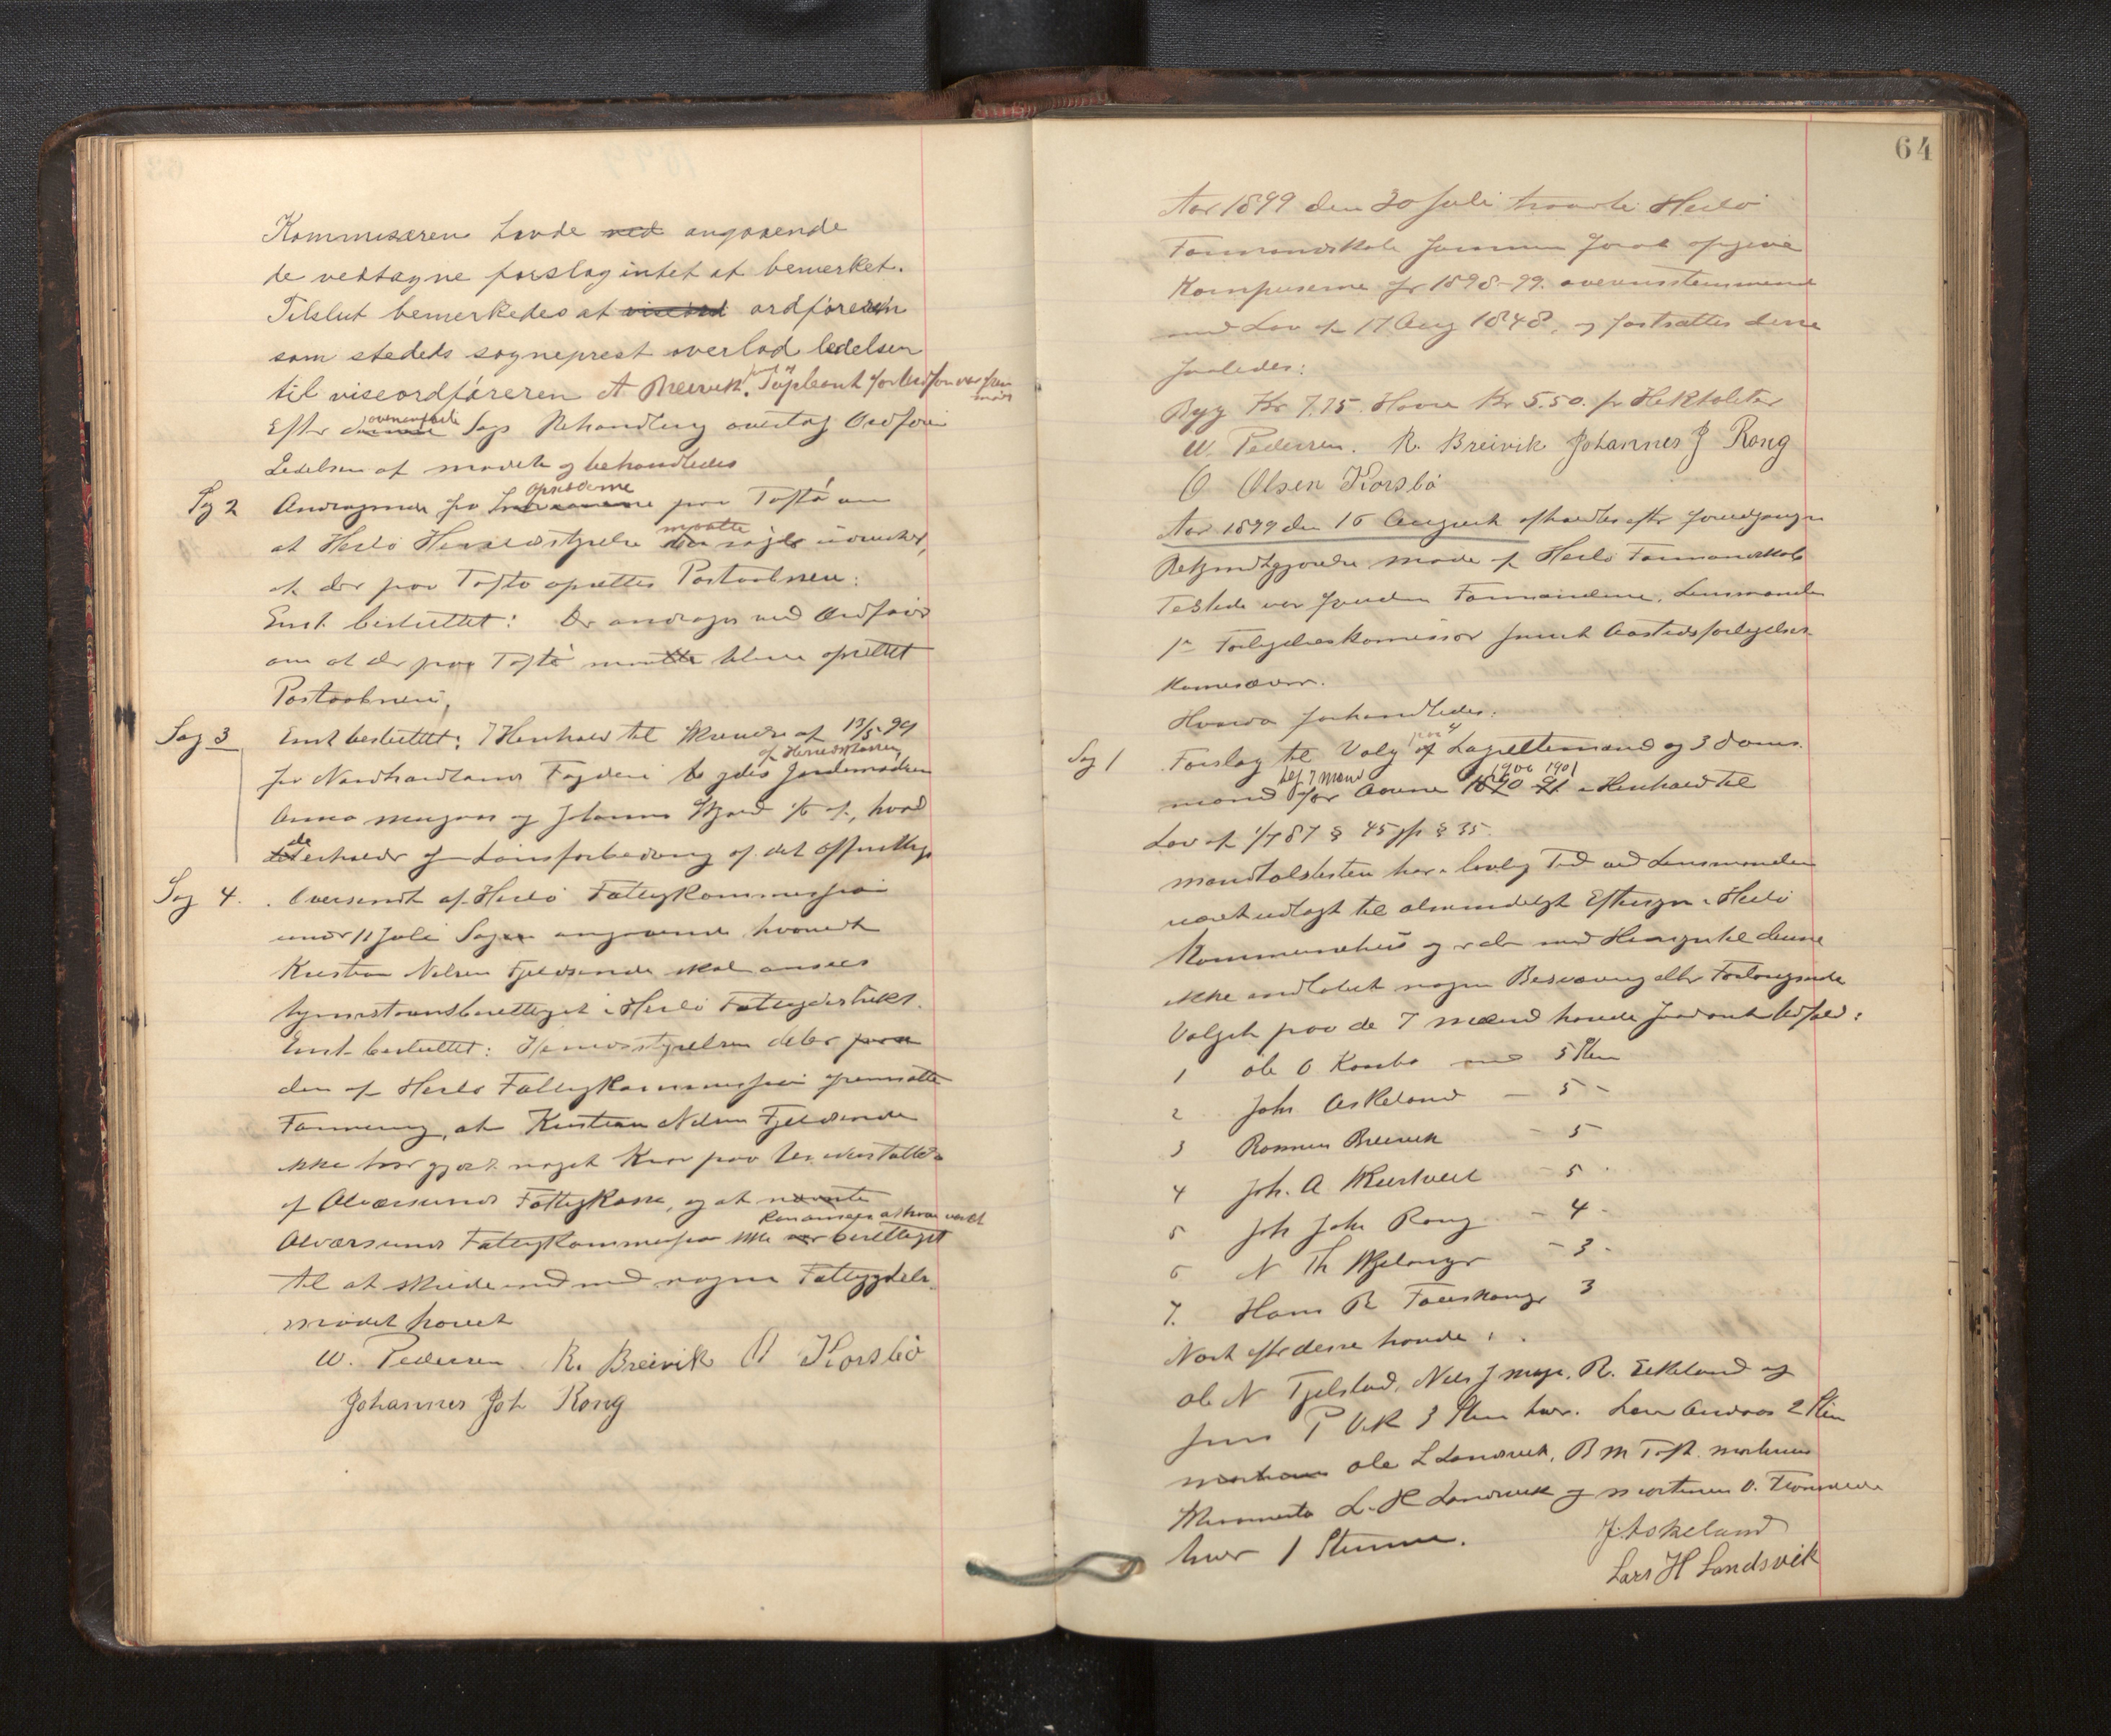 Kommisæren havde ved angaaende
de vedtagne forslag intet at bemerket.
Tilslut bemerkedes at viseord ordføreren
som stedets sogneprest overlod ledelsen
til viseordføreren R Breivik. Suppleant for Ordfør var frem
mødt
Efter denne ovennævnte Sags Behandling overtog Ordfører
Ledelsen af mødet og behandledes
Sag 2 Andragende fra Opsidderne paa Toftø om
at Herlø Herredsstyrelse maatte
at der paa Toftø oprettes Postaabneri:
Enst. besluttet: Der andrages ved Ordfører
om at der paa Toftø maatte blive oprettet
Postaabneri.
Sag 3 Enst besluttet: I Henhold til Skrivelse af 13/5 99
fra Nordhordlands Fogderi
af Herredskassen
Jordemødrene
Anna og Johanne hvad
de erholder i Lønsforbedring af det Offentlige
Sag 4. Oversendt af Herlø Fattigkommission
under 11 Juli Sagen angaaende hvorvidt
Kristian Nilsen Fjeldsende skal ansees
hjemstavnsberettiget i Herlø Fattigdistrikt.
Enst. besluttet: Herredsstyrelsen deler
den af Herlø Fattigkommission fremsatte
Formening, at Kristian Nilsen Fjeldsende
ikke har gjort noget Krav paa Understøttelse
af Alversunds Fattigkasse, og at
kan ansees at have været
Alversunds Fattigkommission ikke var berettiget
til at skride ind med nogen Fattighjælp.
Mødet hævet
W. Pedersen R. Breivik O Korsbø
Johannes Joh Rong
64
Aar 1899 den 20 Juli traadte Herlø
Formandskab sammen forat opgive
Kornpriserne for 1898-99. overensstemmende
med Lov af 17 Aug 1848, og fastsattes disse
saaledes:
Byg Kr 7.75. Havre Kr 5.50. pr Hektoliter
W. Pedersen. R. Breivik Johannes J Rong
O Olsen Korsbø
Aar 1899 den 16 August afholdtes efter foregaaende
Bekjendtgjørelse møde af Herlø Formandskab
Tilstede var foruden Formændene, Lensmanden
1ste Forligelseskommissær samt Aastedsforligelses
kommisær.
Hvorda forhandledes:
Sag 1 Forslag til Valg paa af Lagrettemænd og 3 Doms
mænd for Aarene 1890 91 1900 1901 i Henhold til
Lov af 1/7 87 § 45 jfr § 35.
Mandtalslisten har i lovlig Tid ved Lensmanden
været udlagt til almindeligt Eftersyn i Herlø
Kommunehus og er der med Hensyn til denne
ikke indløbet nogen Besværing eller Forlangende
Valget paa de 7 Mænd havde saadant Udfald:
1 Ole O Korsbø med 5 Stem
2 Johs Askeland - 5 -
3 Rasmus Breivik - 5 -
4 Joh. A - 5 -
5 Joh Johs Rong - 4 -
6 N Th - 3 -
7. Hans R 3
Næst efter disse havde:
Ole N Tjelstad, Nils J R. Eikeland og
Jens P Vik 3 Stem hver. Lars 2 Stem
Ole L Landsvik, B M Toft.
L. H Landsvik og Mortinus O.
hver 1 Stemme.
J Askeland
Lars H Landsvik